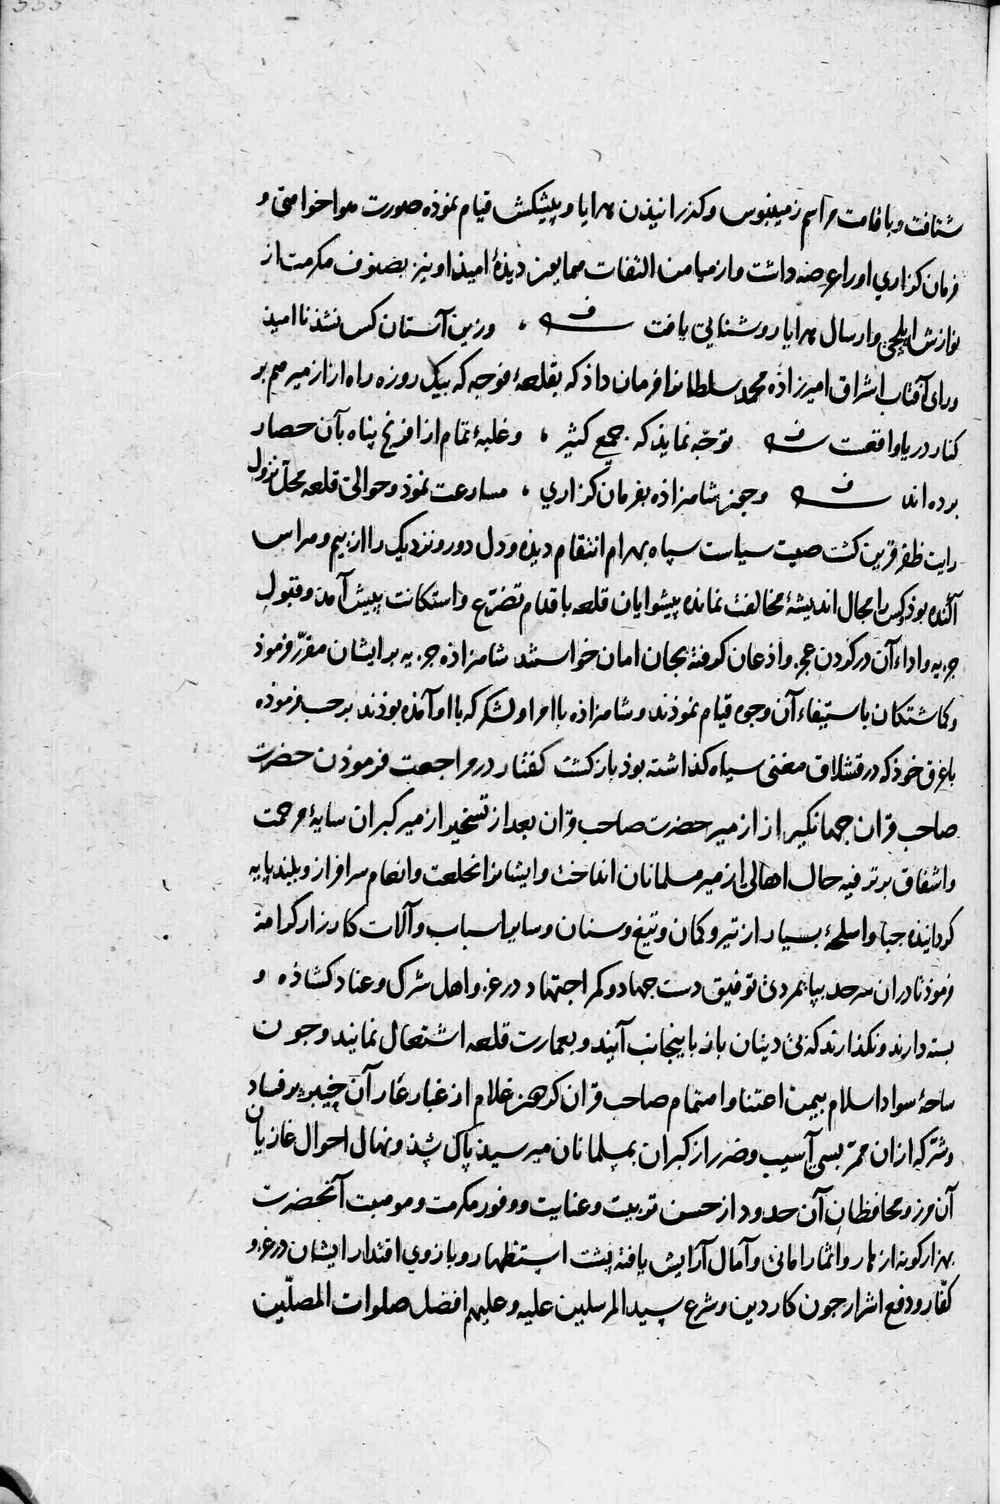 شتافت و باقامت مراسم زمینبوس و کذرانیذن هدایا و پیشکش قیام نموذه صورت هواخواهی و
فرمان کزاری او را عرضه داشت و از میامن التفات همایون دیذهٔ امیذ او نیز بصنوف مکرمت از
نوازش ایلچی و ارسال هدایا روشنایی یافت ورزین آستان کس نشذ ناامیذ
و رای آفتاب اشراق امیرزاذه محمد سلطانرا فرمان داذ که بقلعهٔ فوجه که بیک روزه راه از ازمیر هم بر
کنار دریا واقعست توجّه نمایذ که جمع کثیر و غلبهٔ تمام از افرنج پناه بآن حصار
برده اند و چون شاهزاذه بفرمان کزاری مسارعت نموذ و حوالی قلعه محلّ نزول
رایت ظفر قرین کشت صیت سیاست سپاه بهرام انتقام دیذه و دل دور و نزدیک را از بیم و هراس
آکنده بوذ کس را مجال اندیشهٔ مخالفت نمانده پیشوایان قلعه باقدام تضرّع و استکانت پیش آمدند و قبول
جزیه و اداء آن در کردن عجز و اذعان کرفته بجان امان خواستند شاهزاذه جزیه بر ایشان مقرّر فرموذ
و کماشتکان باستیفاء آن وجوه قیام نموذند و شاهزاذه با امرا و لشکر که با او آمذه بوذند برحسب فرموذه
باغرق خوذ که در قشلاق مغنی سیاه کذاشته بوذ بازکشت کفتار در مراجعت فرموذن حضرت
صاحب قران جهانکیر از ازمیر حضرت صاحب قران بعد از تسخیر ازمیر کبران سایهٔ مرحمت
و اشفاق بر ترفیه حال اهالی ازمیر مسلمانان انداخت و ایشانرا بخلعت و انعام سرافراز و بلندپایه
کردانیذه جبا و اسلحهٔ بسیار از تیر و کمان و تیغ و سنان و سایر اسباب و آلات کارزار کرامت
فرموذ تا در ان سرحد بپایمردی توفیق دست جهاد و کمر اجتهاد در غزو اهل شرک و عناد کشاذه و
بسته دارند و نکذارند که بی دینان باز باینجانب آیند و بعمارت قلعه اشتغال نمایند و چون
ساحهٔ سواد اسلام بیمن اعتنا و اهتمام صاحب قران از غبار عار آن بر فساد
و شرّ که از ان ممرّ بسی آسیب و ضرر از کبران بمسلمانان میرسیذ پاک شذ و نهال احوال غازیان
آن مرز و محافظان آن حدود از حسن تربیت و عنایت و وفور مکرمت و موهبت آنحضرت
بهزار کونه ازهار و اثمار امانی و آمال آرایش یافته پشت استظهار و بازوی اقتدار ایشان در غزو
کفّار و دفع اشرار چون کار دین و شرع سید المرسلین علیه و علیهم افضل صلوات المصلّین